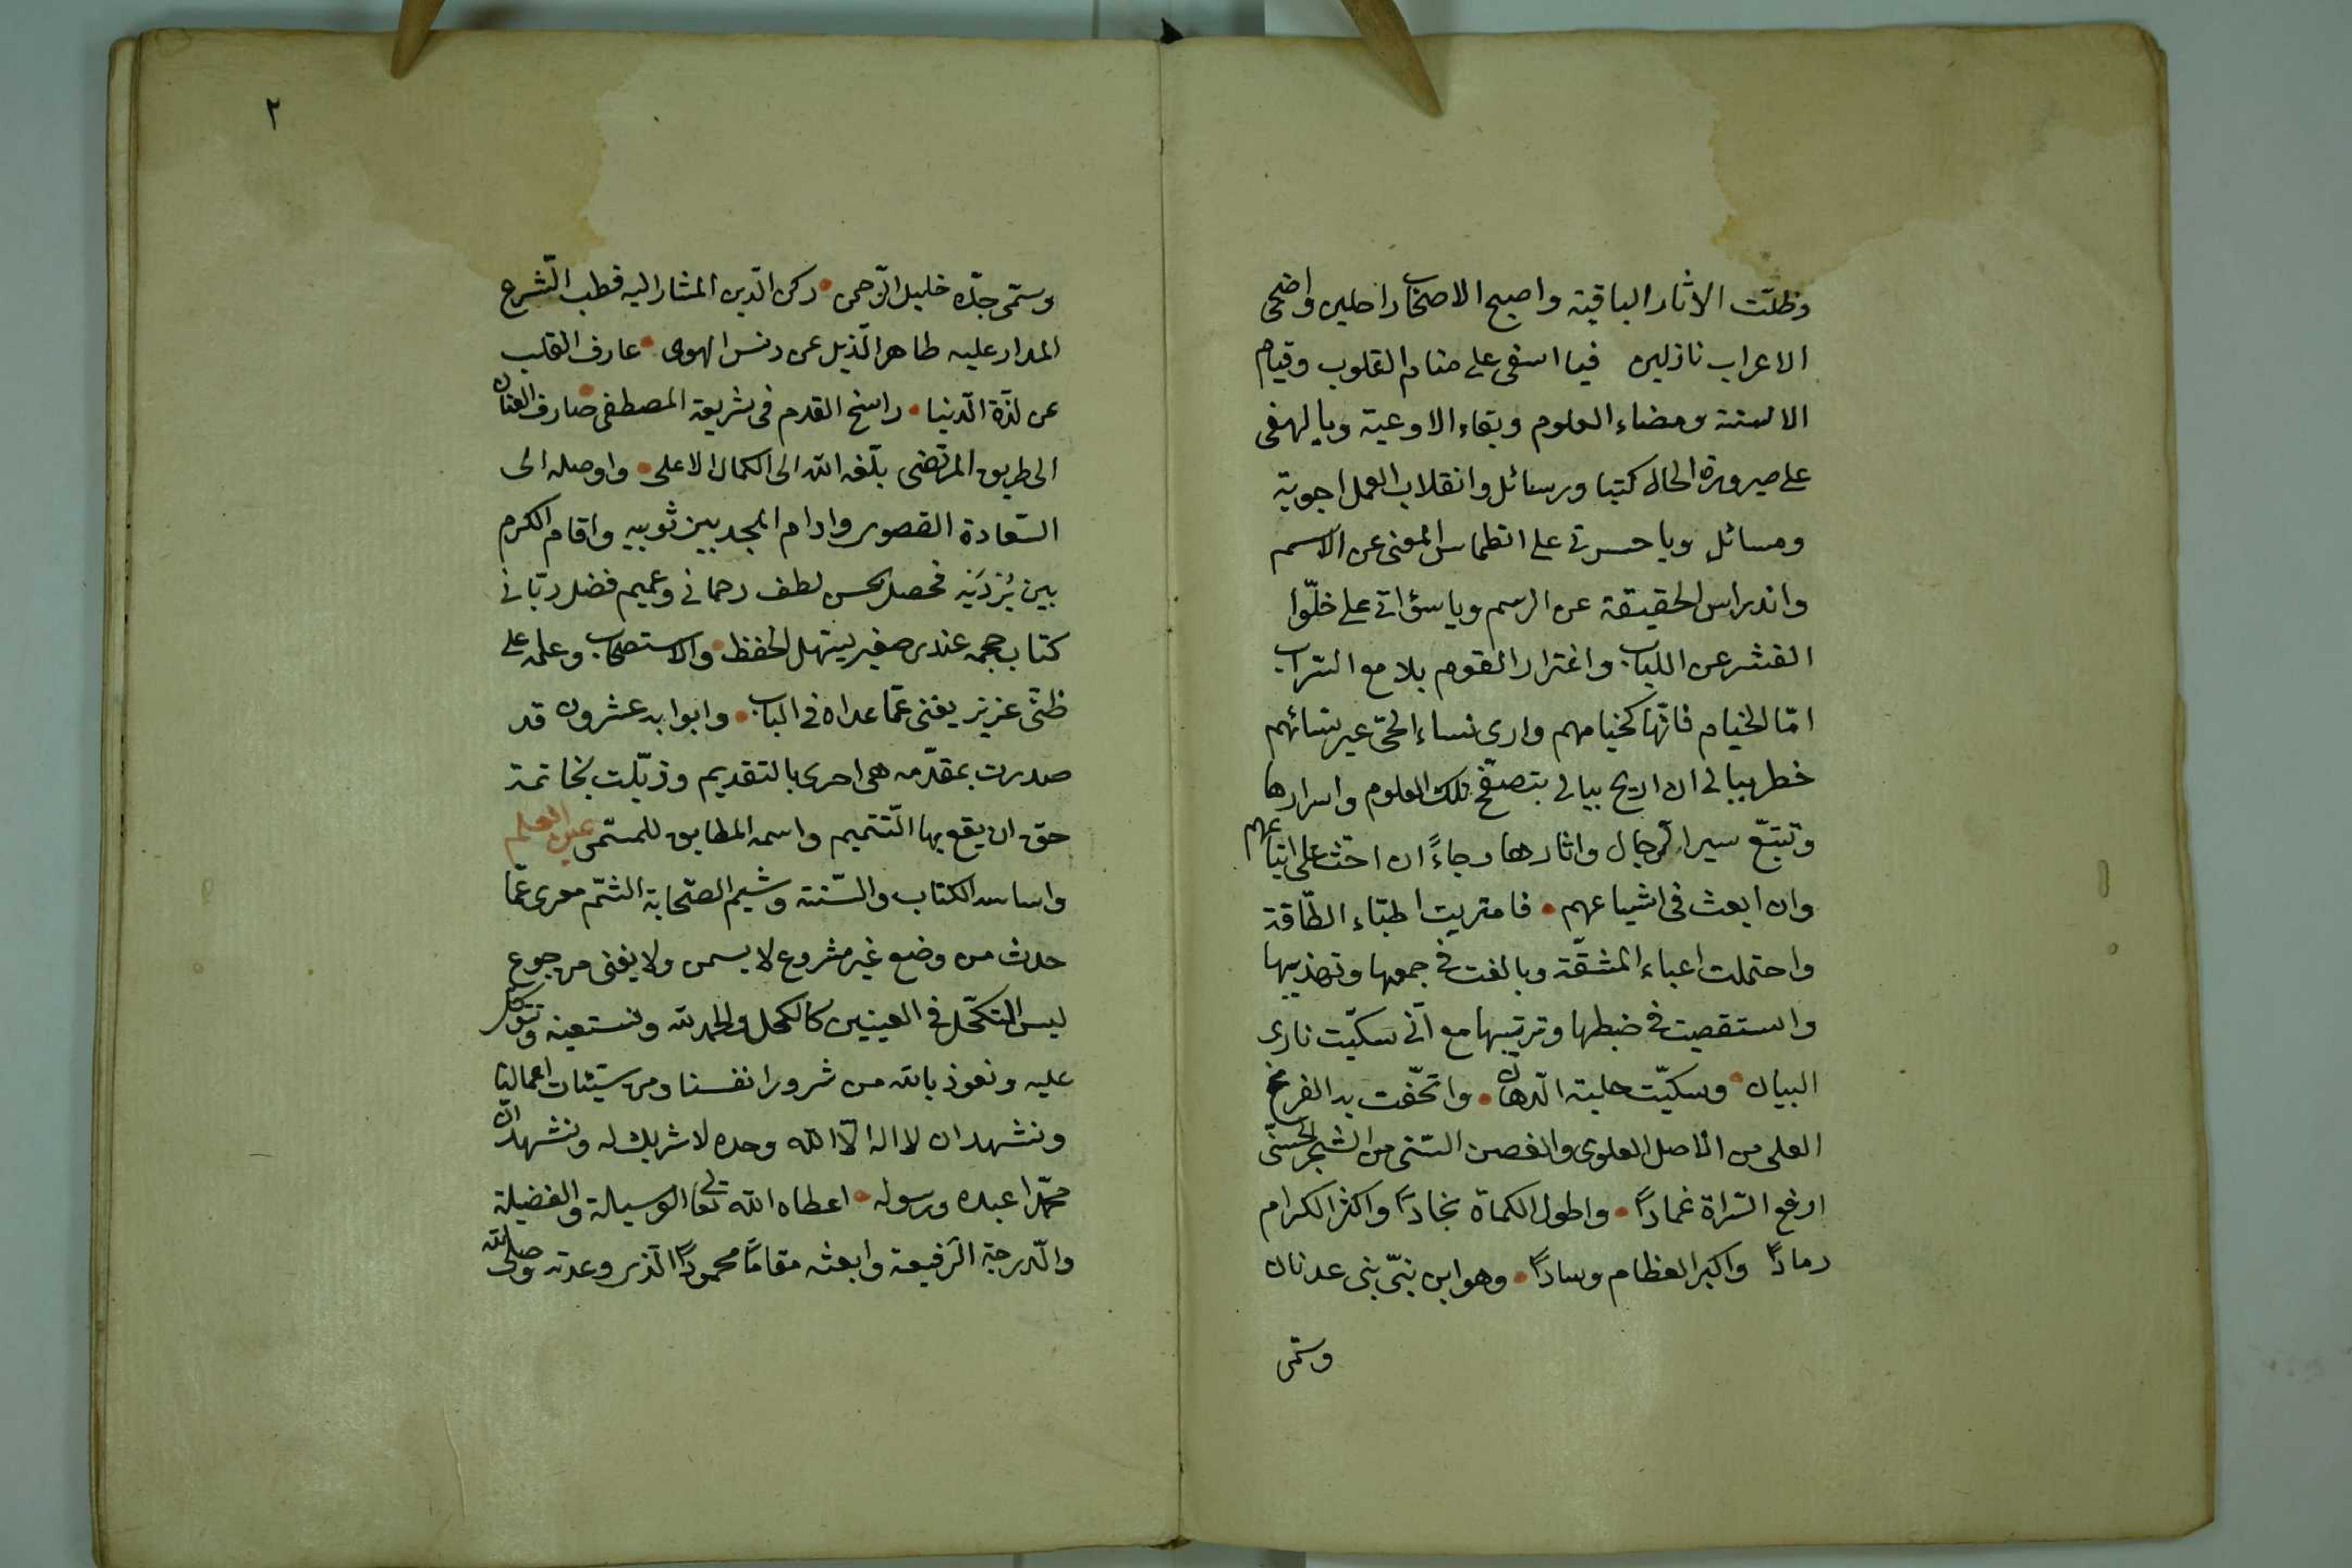 وظلّت الاثار الباقية واصبح الاصحاب راحلين واضحى
الاعراب نازلين فيا اسفى على منام القلوب وقيام
الالسنة ومضاء العلوم وبقاء الاوعية ويالهفى
على صيرورة الحال كتبا ورسائل وانقلاب العمل اجوبة
ومسائل وياحسرتى على انطماس المعنى عن الاسم
واندراس الحقيقة عن الرسم وياسؤاتى على خلّوا
القشر عن اللباب واغترار القوم بلامع السّراب
امّا الخيام فانّها كخيامهم وارى نساء الحىّ غير نسائهم
خطر ببالى ان اريح بيالى بتصفّح تلك العلوم واسرارها
وتتبّع سير الرّجال واثارها رجاءً ان احث على اتباعهم
وان ابعث فى اشياعهم • فامتريت اطباء الطّاقة
واحتملت اعباء المشقّة وبالغت فى جمعها وتهذيبها
واستقصيت فى ضبطها وترتيبها مع انّى سكيّت نادى
البيان • وسكيّت حلبة الدهان • واتحّفت به الفرع
العلى من الاصل العلوى والغصن السّنى من الشجر الحسنى
ارفع السّراة عمادًا • واطول الكماة نجادًا واكثر الكرام
رمادًا واكبر العظام وسادًا • وهو ابن نبىّ بنى عدنان
وسمّى
٢
وسمّى جدّه خليل الرّحمن • ركن الدّين المشار اليه قطب الشّرع
المدار عليه طاهر الذّيل عن دنس الهوى • عارف القلب
عن لذّة الدّنيا • راسخ القدم فى شريعة المصطفى • صارف العنان
الى طريق المرتضى بلّغه الله الى الكمال الاعلى • واوصله الى
السّعادة القصوى وادام المجد بين ثوبيه واقام الكرم
بين بُرْدَيْه فحصل بحسن لطف رحمانى وعميم فضل ربّانى
كتاب حجمه عندى صغير ليسهل للحفظ • والاستصحاب وعلمه على
ظنّى عزيز يغنى عمّا عداه فى الباب • وابوابه عشرون قد
صدرت بمقدّمه هى احرى بالتقديم وذيّلت بخاتمة
حق ان يقع بها التّتميم واسمه المطابق للمسمّى عين العلم
واساسه الكتاب والسّنة وشيم الصّحابة الشّم معرى عمّا
حدث من وضع غير مشروع لا يسمن ولا يغنى من جوع
ليس التكحّل فى العينين كالكحل والحمد لله ونستعينه ونتوكل
عليه ونعوذ بالله من شرور انفسنا ومن سيّئات اعمالنا
ونشهد ان لا اله الّا الله وحده لا شريك له ونشهد انّ
محمّدا عبده ورسوله • اعطاه الله تعالى الوسيلة والفضيلة
والدّرجة الرّفيعة وابعثه مقامًا محمودًا الّذى وعدته وصلى الله